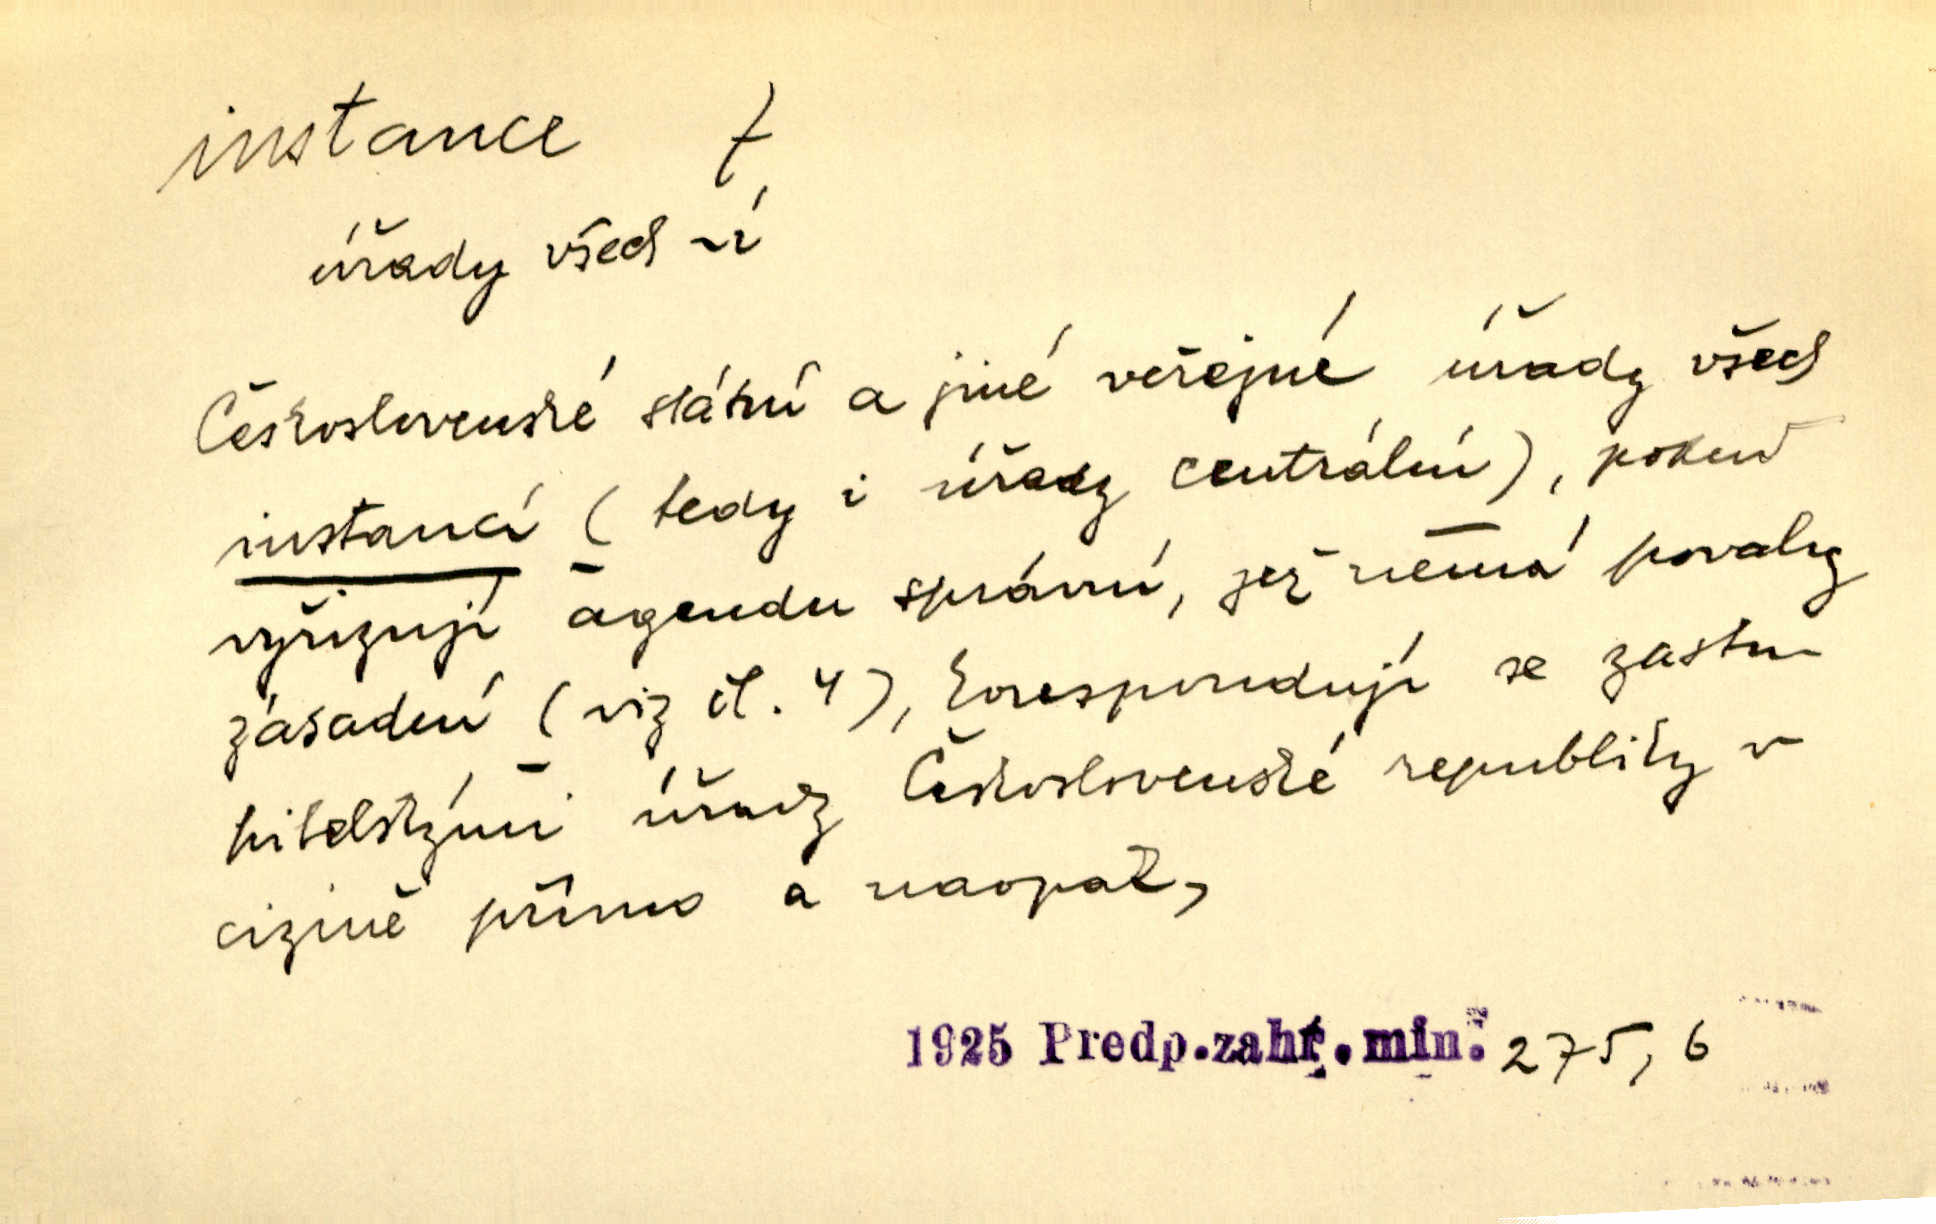 instance f
úřady všech ~í
Československé státní a jiné veřejné úřady všech
instancí (tedy i úřady centrální), pokud
vyřizují agendu správní, jež nemá povahy
zásadní (viz čl. 4), korespondují se zastu-
pitelskými úřady Československé republiky v
cizině přímo a naopak,
1925 Predp.zahr.min. 275, 6